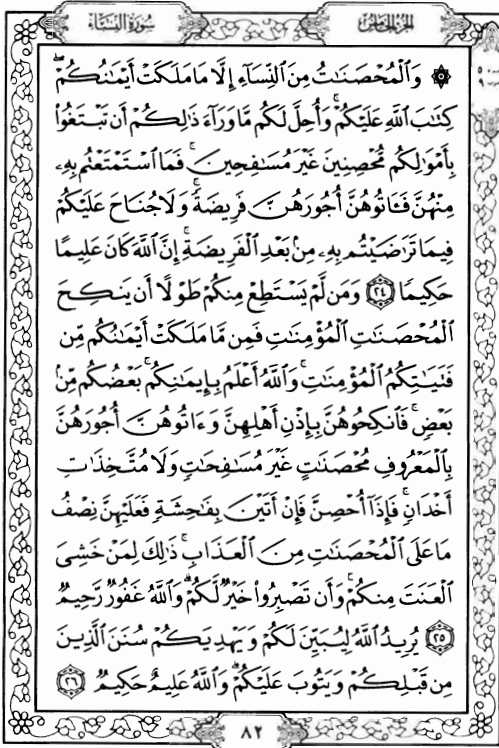 سُورَةُ النِّسَاءِ
الجُزْءُ الخَامِسُ
۞ وَٱلْمُحْصَنَٰتُ مِنَ ٱلنِّسَآءِ إِلَّا مَا مَلَكَتْ أَيْمَٰنُكُمْ ۖ
كِتَٰبَ ٱللَّهِ عَلَيْكُمْ ۚ وَأُحِلَّ لَكُم مَّا وَرَآءَ ذَٰلِكُمْ أَن تَبْتَغُوا۟
بِأَمْوَٰلِكُم مُّحْصِنِينَ غَيْرَ مُسَٰفِحِينَ ۚ فَمَا ٱسْتَمْتَعْتُم بِهِۦ
مِنْهُنَّ فَـَٔاتُوهُنَّ أُجُورَهُنَّ فَرِيضَةً ۚ وَلَا جُنَاحَ عَلَيْكُمْ
فِيمَا تَرَٰضَيْتُم بِهِۦ مِنۢ بَعْدِ ٱلْفَرِيضَةِ ۚ إِنَّ ٱللَّهَ كَانَ عَلِيمًا
حَكِيمًا ٢٤ وَمَن لَّمْ يَسْتَطِعْ مِنكُمْ طَوْلًا أَن يَنكِحَ
ٱلْمُحْصَنَٰتِ ٱلْمُؤْمِنَٰتِ فَمِن مَّا مَلَكَتْ أَيْمَٰنُكُم مِّن
فَتَيَٰتِكُمُ ٱلْمُؤْمِنَٰتِ ۚ وَٱللَّهُ أَعْلَمُ بِإِيمَٰنِكُم ۚ بَعْضُكُم مِّنۢ
بَعْضٍ ۚ فَٱنكِحُوهُنَّ بِإِذْنِ أَهْلِهِنَّ وَءَاتُوهُنَّ أُجُورَهُنَّ
بِٱلْمَعْرُوفِ مُحْصَنَٰتٍ غَيْرَ مُسَٰفِحَٰتٍ وَلَا مُتَّخِذَٰتِ
أَخْدَانٍ ۚ فَإِذَآ أُحْصِنَّ فَإِنْ أَتَيْنَ بِفَٰحِشَةٍ فَعَلَيْهِنَّ نِصْفُ
مَا عَلَى ٱلْمُحْصَنَٰتِ مِنَ ٱلْعَذَابِ ۚ ذَٰلِكَ لِمَنْ خَشِىَ
ٱلْعَنَتَ مِنكُمْ ۚ وَأَن تَصْبِرُوا۟ خَيْرٌ لَّكُمْ ۗ وَٱللَّهُ غَفُورٌ رَّحِيمٌ
٢٥ يُرِيدُ ٱللَّهُ لِيُبَيِّنَ لَكُمْ وَيَهْدِيَكُمْ سُنَنَ ٱلَّذِينَ
مِن قَبْلِكُمْ وَيَتُوبَ عَلَيْكُمْ ۗ وَٱللَّهُ عَلِيمٌ حَكِيمٌ ٢٦
٨٢